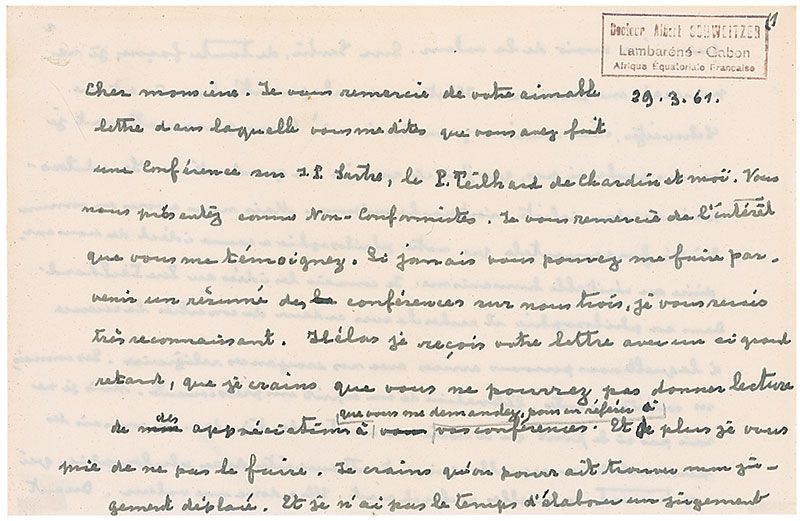 Docteur Albert SCHWEITZER
Lambaréné - Gabon
Afrique Équatoriale Française
cher monsieur. Je vous remercie de votre aimable 29.3.61.
lettre dans laquelle vous me dites que vous avez fait
une Conférence sur J.P. Sartre, le P. Teilhard de Chardin et moi. Vous
nous présentez comme Non-Conformistes. Je vous remercie de l'intérêt
que vous me témoignez. Si jamais vous pouvez me faire par-
venir un résumé des conférences sur nous trois, je vous serais
très reconnaissant. Hélas je reçois votre lettre avec un si grand
retard, que je crains que vous ne pourrez pas donner lecture
que vous me demandez, pour en référer à
de des appréciations à vos conférences. Et de plus je vous
prie de ne pas le faire. Je crains qu'on pourrait trouver mon ju-
gement déplacé. Et je n'ai pas le temps d'élaborer un jugement